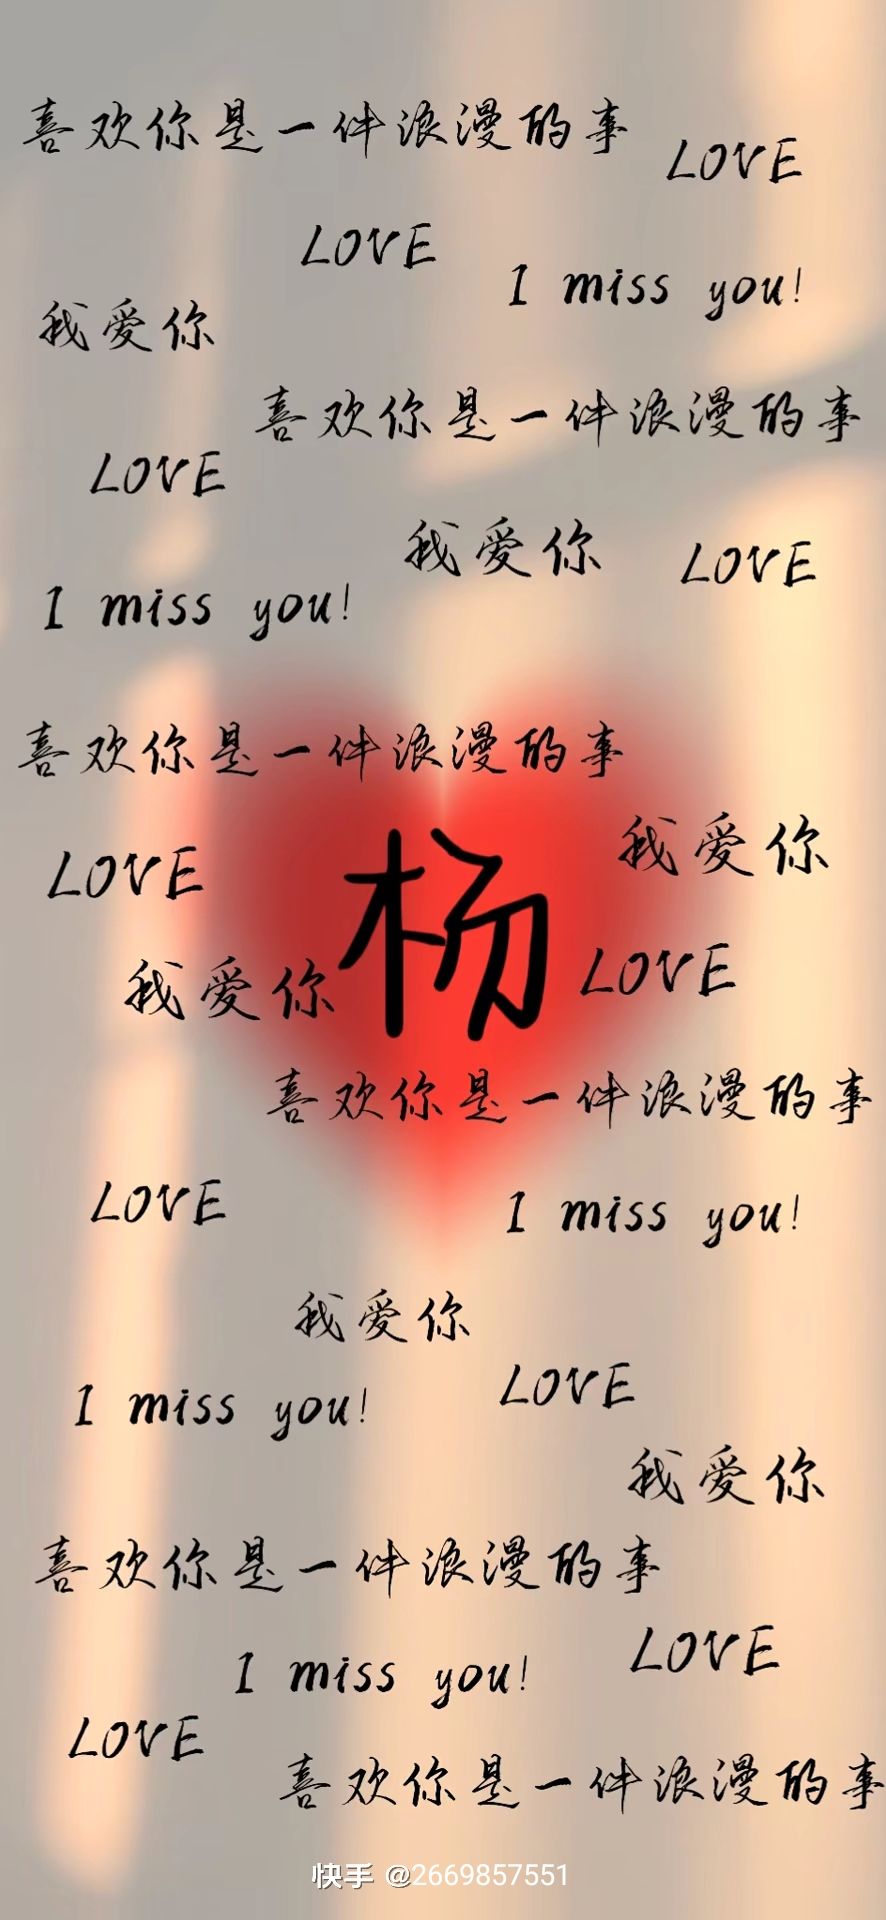 喜欢你是一件浪漫的事
LOVE
LOVE
I miss you!
我爱你
喜欢你是一件浪漫的事
LOVE
我爱你
LOVE
I miss you!
喜欢你是一件浪漫的事
我爱你
LOVE
杨
我爱你
LOVE
喜欢你是一件浪漫的事
LOVE
I miss you!
我爱你
LOVE
I miss you!
我爱你
喜欢你是一件浪漫的事
LOVE
I miss you!
LOVE
喜欢你是一件浪漫的事
快手 @2669857551